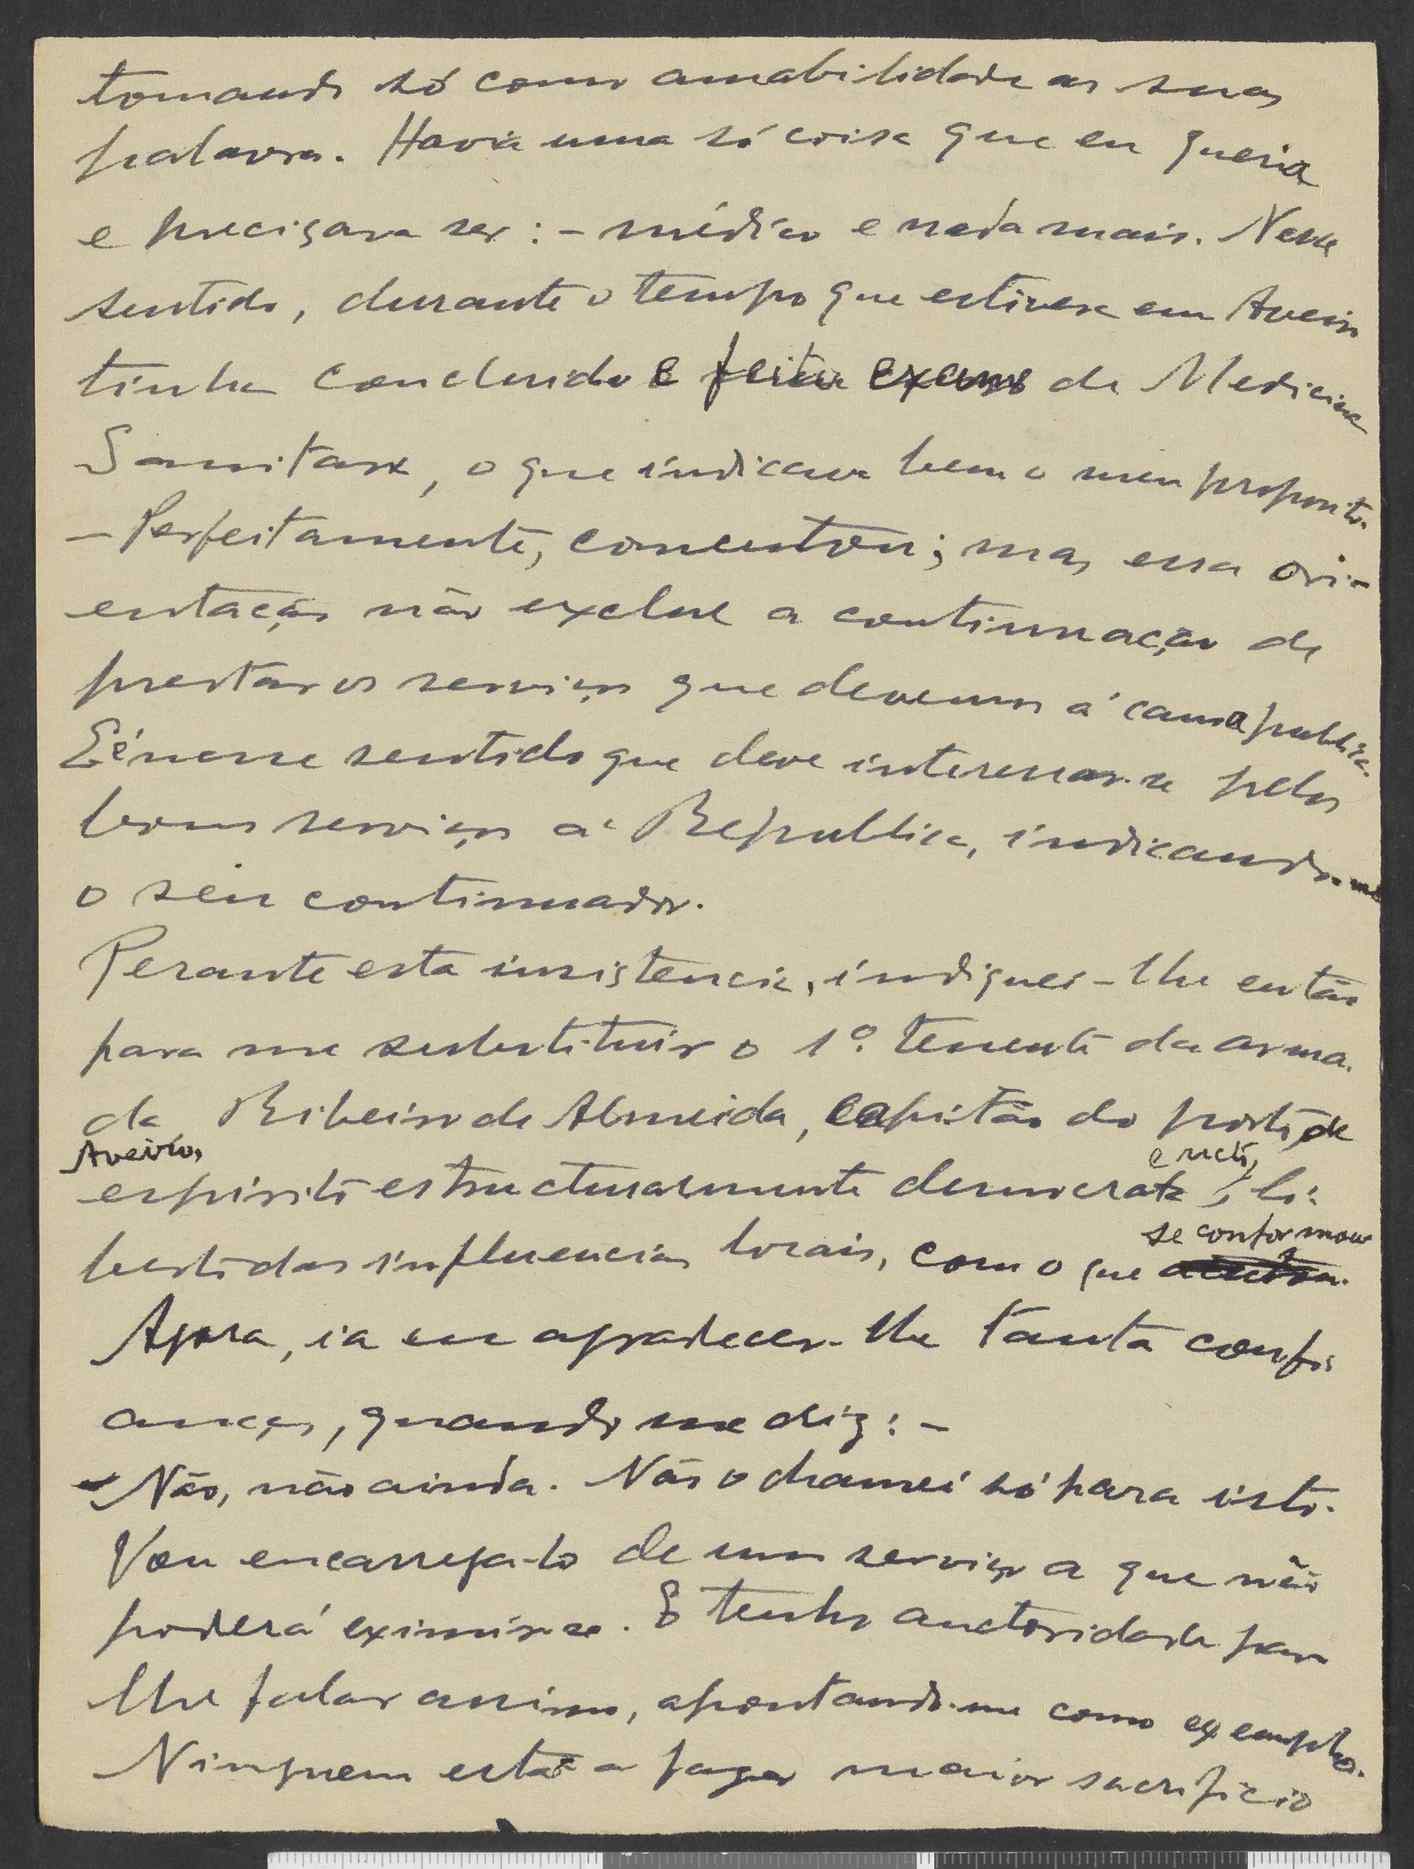 tomando só como amabilidade as suas
palavras. Havia uma só coisa que eu queria
e precisava ser: - médico e nada mais. Nesse
sentido, durante o tempo que estivera em Aveiro
tinha concluido e feito exame de Medicina
Sanitaria, o que indicava bem o meu proposito.
- Perfeitamente, comentou; mas essa ori-
entação não exclue a continuação de
prestar os serviços que devemos á causa publica.
E é nesse sentido que deve interessar-se pelos
bons serviços á Republica, indicando-me
o seu continuador.
Perante esta insistencia, indiquei-lhe então
para me substituir o 1º. tenente da arma-
da Ribeiro de Almeida, capitão do porto de
Aveiro,
espirito estructuralmente democrata e recto, li-
berto das influencias locais, com o que se conformou
Agora, ia eu agradecer-lhe tanta confi
ança, quando me diz: -
- Não, não ainda. Não o chamei só para isto.
Vou encarrega-lo de um serviço a que não
poderá eximir-se. E tenho auctoridade para
lhe falar assim, apontando-me como exemplo.
Ninguem está a fazer maior sacrificio